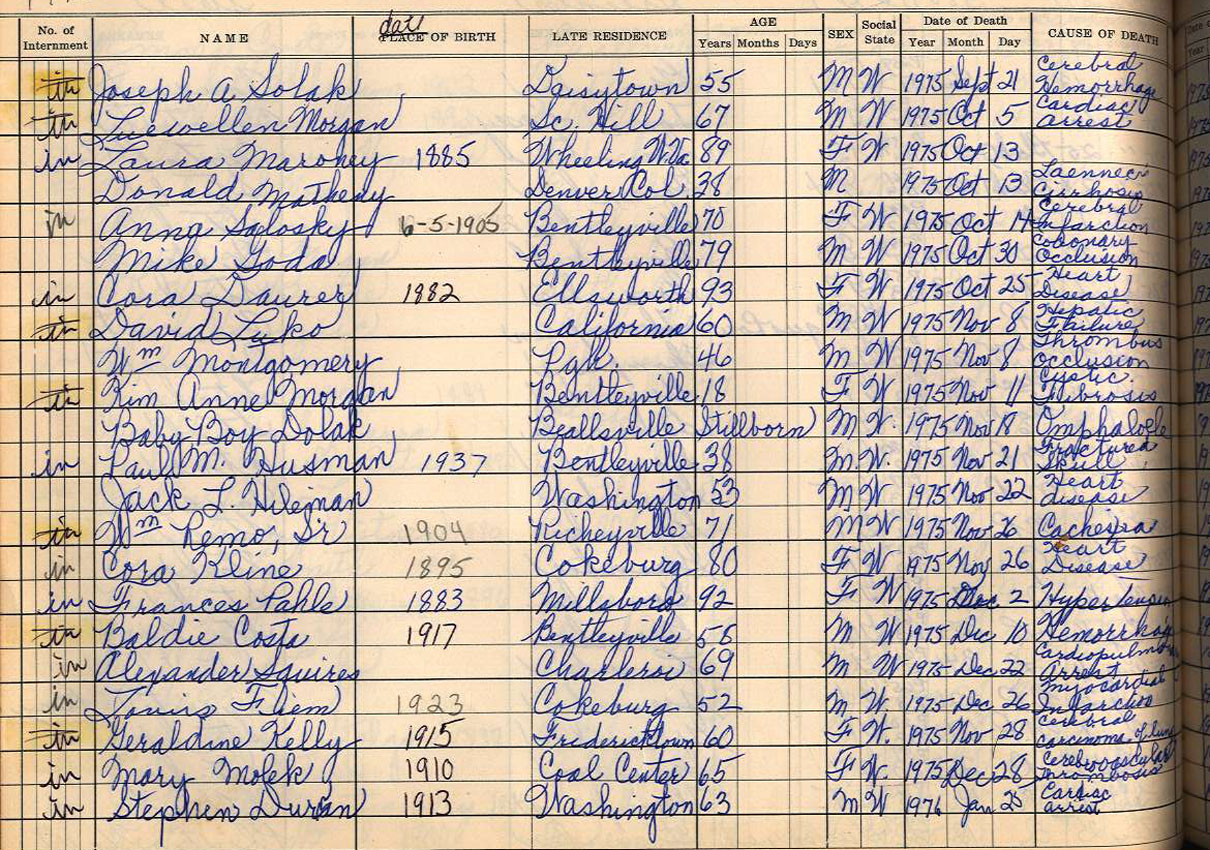 No. of Internment NAME date PLACE OF BIRTH LATE RESIDENCE AGE Years Months Days SEX Social State Date of Death Year Month Day CAUSE OF DEATH
in Joseph A Solak Daisytown 55 M W 1975 Sept 21 Cerebral Hemorrhage
in Luewellen Morgan Sc. Hill 67 M W 1975 Oct 5 Cardiac arrest
in Laura Maroney 1885 Wheeling W.Va 89 F W 1975 Oct 13
Donald Matheny Denver Col. 38 M 1975 Oct 13 Laennecs Cirrhosis
in Anna Solosky 6-5-1905 Bentleyville 70 F W 1975 Oct 14 Cerebral Infarction
Mike Goda Bentleyville 79 M W 1975 Oct 30 Coronary Occlusion
in Cora Daurer 1882 Ellsworth 93 F W 1975 Oct 25 Heart Disease
in David Luko California 60 M W 1975 Nov 8 Hepatic Failure
Wm Montgomery Pgh. 46 M W 1975 Nov 8 Thrombus Occlusion
in Kim Anne Morgan Bentleyville 18 F W 1975 Nov 11 Cystic Fibrosis
Baby Boy Dolak Beallsville Stillborn M W. 1975 Nov 18 Omphalocele
in Paul M. Husman 1937 Bentleyville 38 M. W. 1975 Nov 21 Fractured Skull
Jack L. Hileman Washington 53 M W 1975 Nov 22 Heart disease
in Wm Remo, Sr 1904 Richeyville 71 M W 1975 Nov 26 Cachexia
in Cora Kline 1895 Cokeburg 80 F W. 1975 Nov 26 Heart Disease
in Frances Pahle 1883 Millsboro 92 F W 1975 Dec 2 Hypertension
in Baldie Costa 1917 Bentleyville 58 M W 1975 Dec 10 Hemorrhage
in Alexander Squires Charleroi 69 M W 1975 Dec 22 Cardiopulmonary Arrest
in Louis Fliem 1923 Cokeburg 52 M W. 1975 Dec 26 Myocardial Infarction
in Geraldine Kelly 1915 Fredericktown 60 F W. 1975 Nov 28 Cerebral carcinoma of lung
in Mary Molek 1910 Coal Center 65 F W. 1975 Dec 28 Cerebrovascular thrombosis
in Stephen Duran 1913 Washington 63 M W 1976 Jan 25 Cardiac arrest